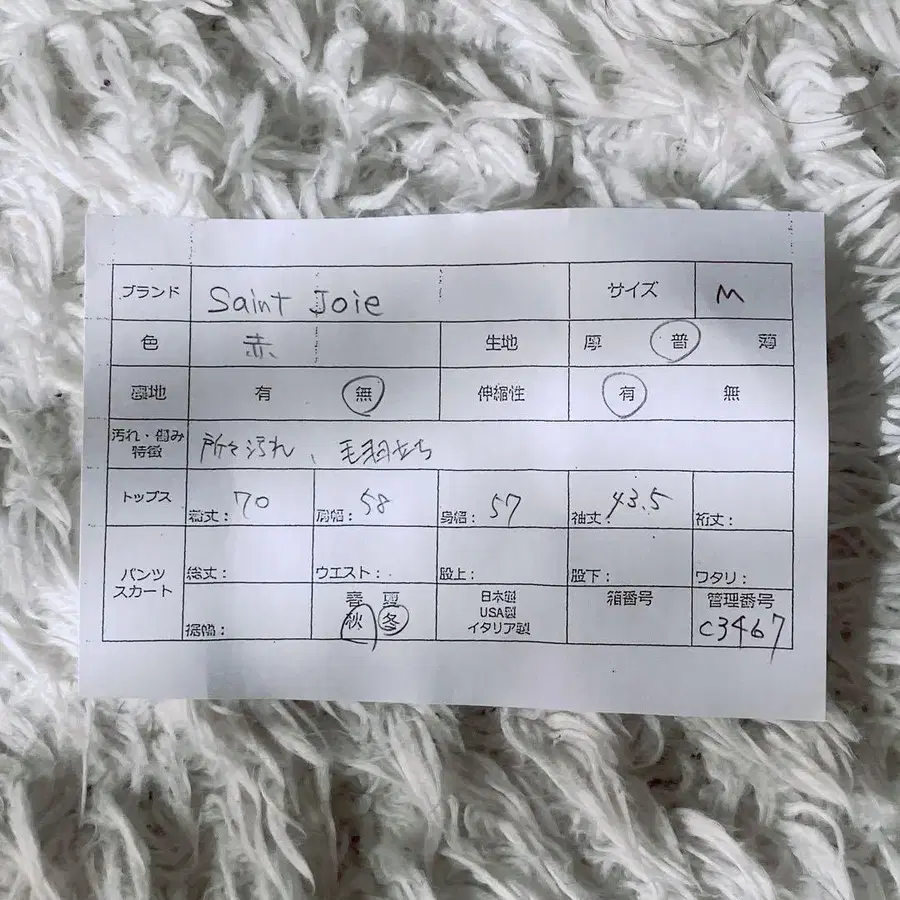 ブランド Saint Joie サイズ M
色 赤 生地 厚 普 薄
裏地 有 無 伸縮性 有 無
汚れ・傷み
特徴 所々汚れ、毛羽立ち
トップス 着丈: 70 肩幅: 58 身幅: 57 袖丈: 43.5 裄丈:
パンツ
スカート 総丈: ウエスト: 股上: 股下: ワタリ:
裾幅:
春 夏
秋 冬
日本製
USA製
イタリア製
箱番号
管理番号
C3467